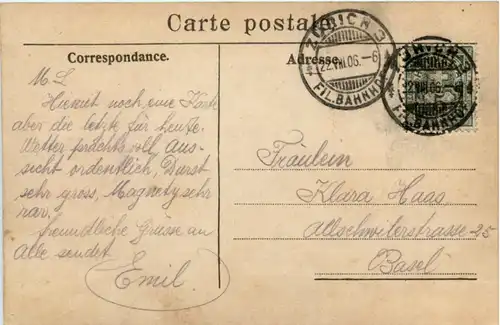 Carte postale
Correspondance.
Adresse
ZÜRICH 3
22.VIII.06.–6
FIL. BAHNHOF
ZÜRICH 3
22.VIII.06.–6
FIL. BAHNHOF
M. L
Hiemit noch eine Karte
aber die letzte für heute.
Wetter prachtvoll, Aus-
sicht ordentlich, Durst
sehr gross, sehr
rar.
freundliche Grüsse an
Alle sendet
Emil.
Fräulein
Klara Haas
Allschwilerstrasse 25
Basel